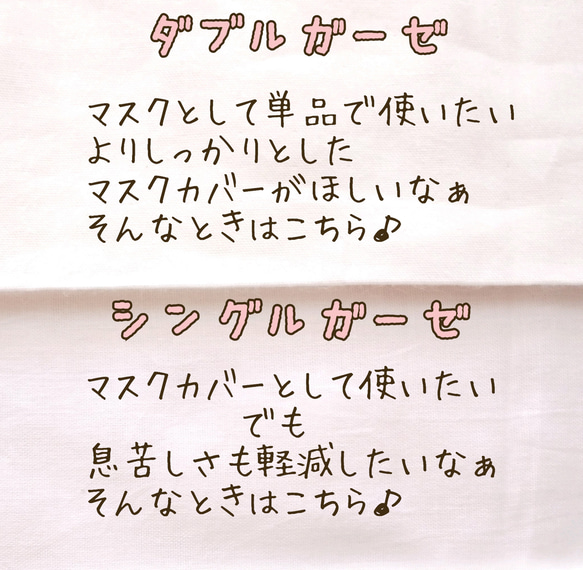 ダブルガーゼ
マスクとして単品で使いたい
よりしっかりとした
マスクカバーがほしいなぁ
そんなときはこちら♪
シングルガーゼ
マスクカバーとして使いたい
でも
息苦しさも軽減したいなぁ
そんなときはこちら♪